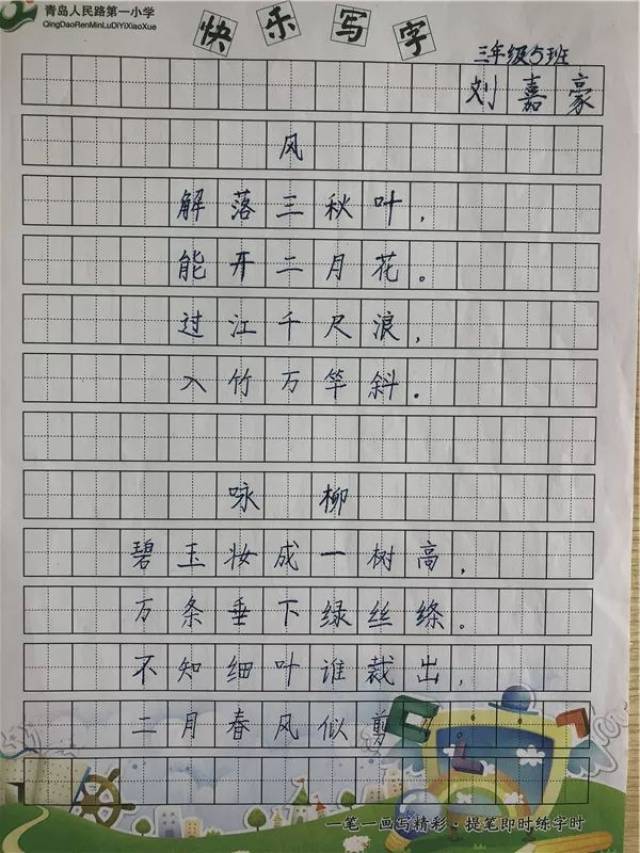 青岛人民路第一小学
QingDaoRenMinLuDiYiXiaoXue
快乐写字
三年级5班
刘嘉豪
风
解落三秋叶，
能开二月花。
过江千尺浪，
入竹万竿斜。
咏柳
碧玉妆成一树高，
万条垂下绿丝绦。
不知细叶谁裁出，
二月春风似剪
一笔一画写精彩·提笔即时练字时